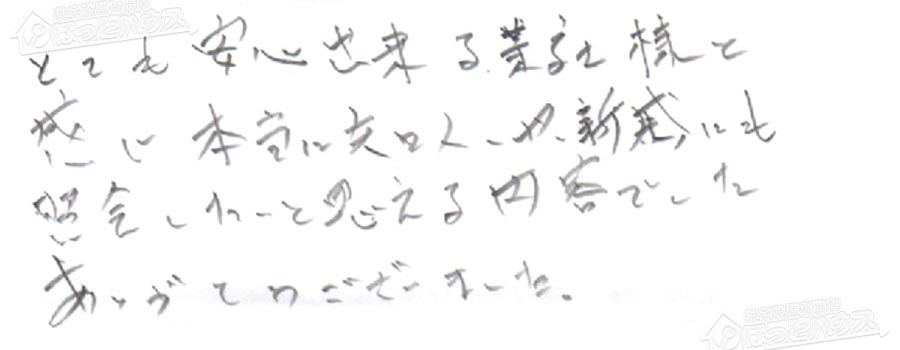 とても安心出来る業者様と
感じ本当に知人や親戚にも
照会したいと思える内容でした
ありがとうございました。
ほっとハウス
ほっとハウス